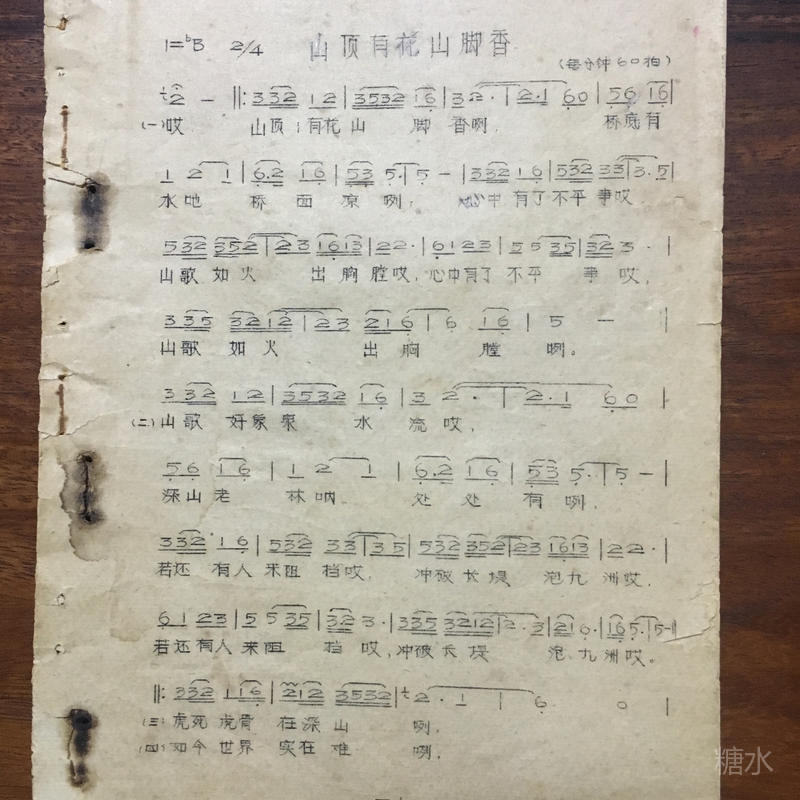 1=ᵇB 2/4 山顶有花山脚香
(每分钟60拍)
2 - ‖: 332 12 | 3532 16 | 3 2· | 2·1 60 | 56 16 |
(一)哎 山顶有花山 脚 香咧, 桥底有
1 2 1 | 6·2 16 | 53 5· | 5 - | 332 16 | 532 33 | 3·5 |
水吔 桥 面 凉 咧, 心中 有了不平 事哎
532 352 | 23 1613 | 22· | 6123 | 5 535 | 32 3· |
山歌 如火 出胸膛哎,心中有了不平 事哎,
335 3212 | 23 216 | 6 16 | 5 - |
山歌 如火 出胸 膛 咧。
332 12 | 3532 16 | 3 2· | 2·1 60 |
(二)山歌 好象泉 水 流哎,
56 16 | 1 2 1 | 6·2 16 | 53 5· | 5 - |
深山老 林呐 处处有咧,
332 16 | 532 33 | 35 | 532 352 | 23 1613 | 22· |
若还 有人来阻 挡哎, 冲破长堤 泡九洲哎,
61 23 | 5 535 | 32 3· | 335 3212 | 2·3 | 210· | 165· | 5- ‖
若还有人来阻 挡哎,冲破长堤 泡九洲哎。
‖: 332 116 | 212 3532 | 2·1 | 6 0 |
(三)虎死虎骨 在深山 咧,
(四)如今世界 实在难 咧,
糖水